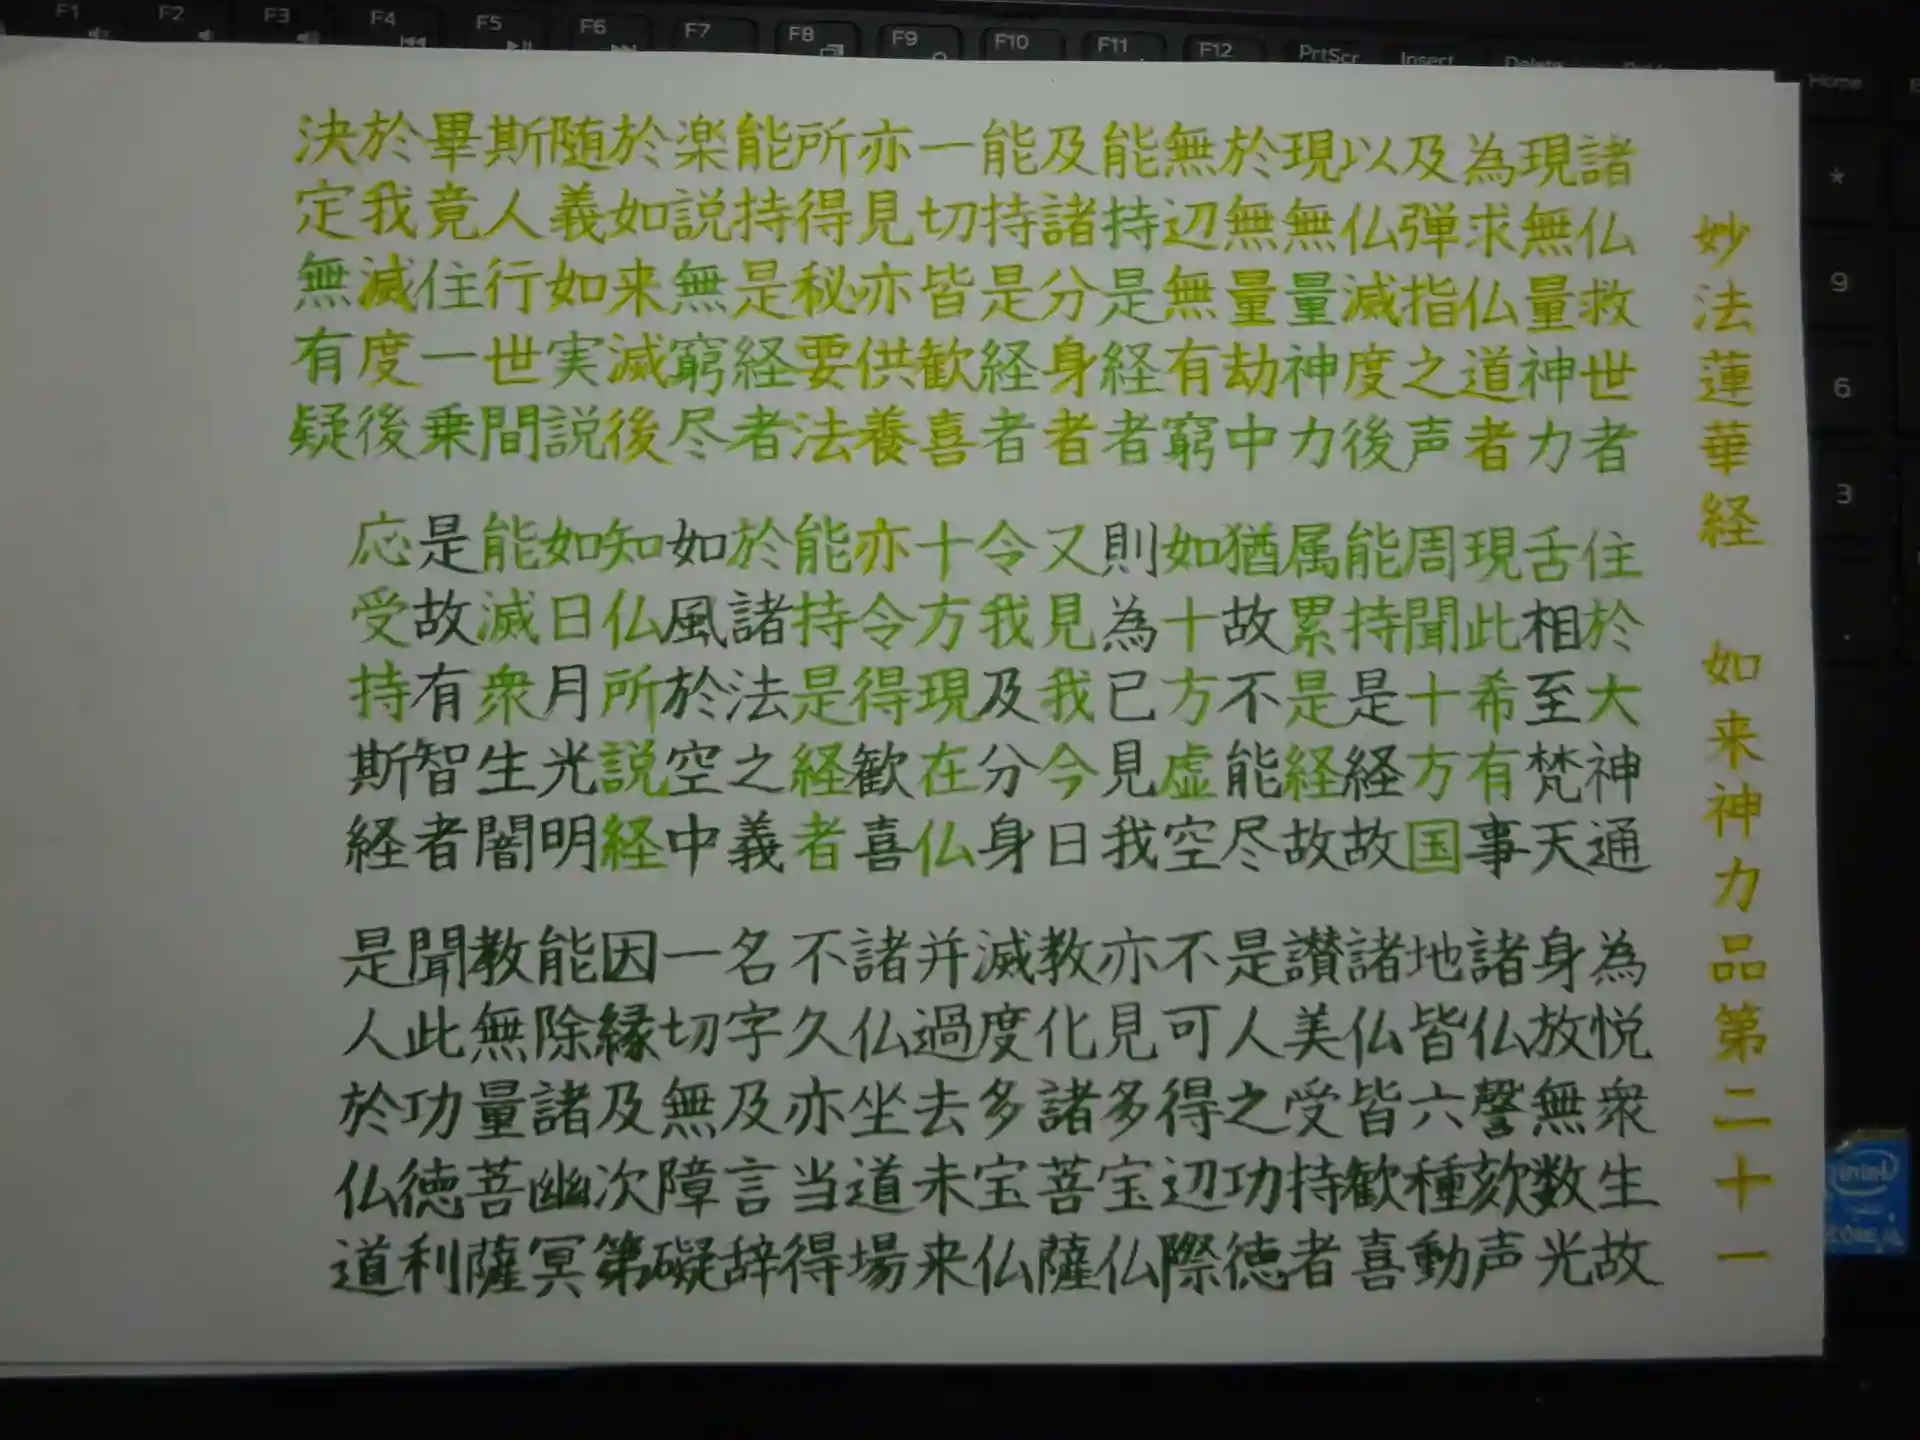 妙法蓮華経 如来神力品第二十一
諸仏救世者 住於大神通 為悦衆生故
現無量神力 舌相至梵天 身放無数光
為求仏道者 現此希有事 諸仏謦欬声
及弾指之声 周聞十方国 地皆六種動
以仏滅度後 能持是経故 諸仏皆歓喜
現無量神力 属累是経故 讃美受持者
於無量劫中 猶故不能尽 是人之功徳
無辺無有窮 如十方虚空 不可得辺際
能持是経者 則為已見我 亦見多宝仏
及諸分身者 又見我今日 教化諸菩薩
能持是経者 令我及分身 滅度多宝仏
一切皆歓喜 十方現在仏 并過去未来
亦見亦供養 亦令得歓喜 諸仏坐道場
所得秘要法 能持是経者 不久亦当得
能持是経者 於諸法之義 名字及言辞
楽説無窮尽 如風於空中 一切無障礙
於如来滅後 知仏所説経 因縁及次第
随義如実説 如日月光明 能除諸幽冥
斯人行世間 能滅衆生闇 教無量菩薩
畢竟住一乗 是故有智者 聞此功徳利
於我滅度後 応受持斯経 是人於仏道
決定無有疑
F1 F2 F3 F4 F5 F6 F7 F8 F9 F10 F11 F12 PrtScr Insert Delete Home
*
9
6
3
.
intel